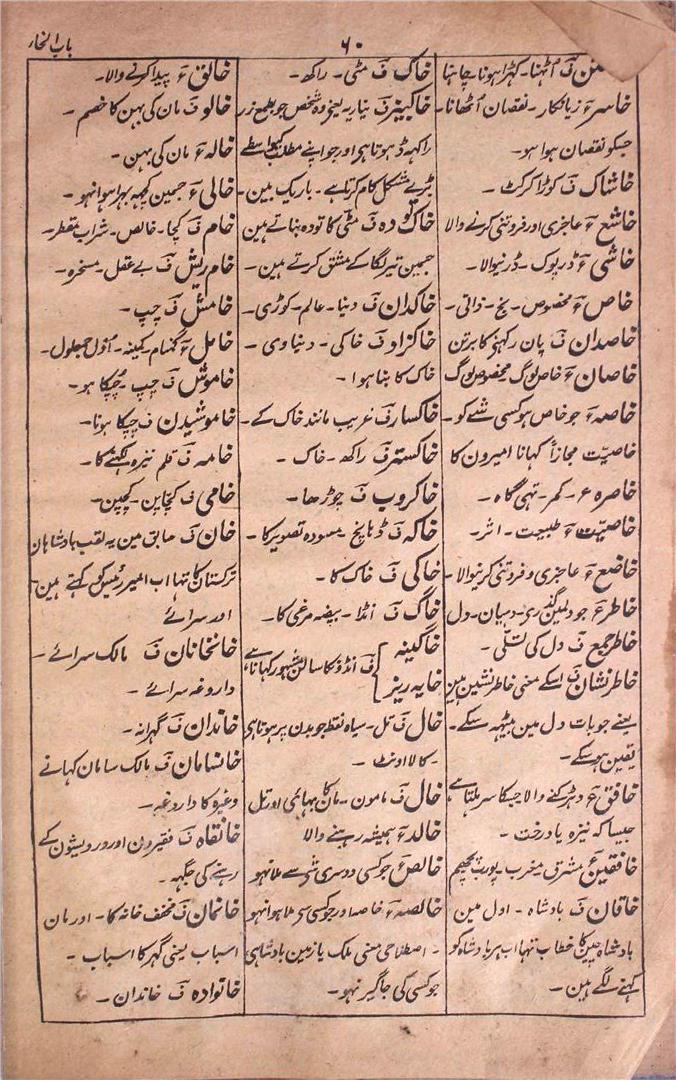 باب الخار
۶۰
ف اٹھنا۔ کہڑا ہونا۔ چاہنا
خاسر ء زیانکار۔ نقصان اُٹھانا۔
جسکو نقصان ہوا ہو۔
خاشاک ف کوڑا کرکٹ ۔
خاشع ء عاجزی اور فروتنی کرنے والا
خاشی ء ڈرپوک۔ ڈرنیوالا۔
خاص ء مخصوص۔ نج۔ ذاتی۔
خاصدان ف پان رکہنے کا برتن
خاصان ء خاص لوگ مخصوص لوگ
خاصہ ء جو خاص ہو کسی شئے کو۔
خاصیّت مجازاً کہانا امیرون کا
خاصرہ ء۔ کمر۔ تہی گاہ ۔
خاصیّت ء طبیعت۔ اثر۔
خاضع ء عاجزی و فروتنی کرنیوالا۔
خاطر ء جو دلمین گذری۔ دہیان۔ دل
خاطر جمع ف دل کی تسلّی ۔
خاطر نشان ف اسکے معنی خاطر نشین ہین
یعنے جو بات دل مین بیٹہہ سکے۔
یقین ہوسکے۔
خافق ء دہڑکنے والا جسکا سر ہلتا ہے
جیسا کہ نیزہ یا درخت ۔
خافقین ء مشرق مغرب۔ پورب پچہم
خاقان ف بادشاہ ۔ اول مین
بادشاہ چین کا خطاب تہا اب ہر بادشاہ کو
کہنے لگے ہین ۔
خاک ف مٹی۔ راکھ ۔
خاکبیز ف نیاریہ یعنے وہ شخص جو بطمع زر
راکہہ ڈہوتا ہی اور جو اپنے مطلب کیواسطے
بڑے مشکل کام کرتا ہے۔ باریک بین ۔
خاک تودہ ف مٹی کا تودہ بناتے ہین
جسمین تیر لگا کے مشق کرتے ہین ۔
خاکدان ف دنیا۔ عالم۔ کوڑی۔
خاکزاد ف خاکی ۔ دنیاوی ۔
خاک کا بنا ہوا ۔
خاکسار ف غریب مانند خاک کے۔
خاکستر ف راکھ ۔ خاک ۔
خاکروب ف چوڑھا ۔
خاکہ ف ڈہانچ ۔ مسودہ تصویر کا ۔
خاکی ف خاک کا ۔
خاگ ف انڈا۔ بیضہ مرغی کا ۔
خاگینہ
خایہ ریز
ف انڈو نکا سالن مشہور کہانا ہے
خال ف تل۔ سیاہ نقطہ جو بدن پر ہوتا ہی
۔ کالا اونٹ ۔
خال ف مامون ۔ مان کا بہائی اور تل
خالد ء ہمیشہ رہنے والا
خالص ء جو کسی دوسری شے سے ملا نہو
خالصہ ء خاصہ اور جو کسی سے ملا ہوا نہو
۔ اصطلاحی معنی ملک یا زمین بادشاہی
جو کسی کی جاگیر نہو۔
خالق ء پیدا کرنے والا۔
خالو ف مان کی بہن کا خصم ۔
خالہ ء مان کی بہن ۔
خالی ء جسمین کچہہ بہرا ہوا نہو ۔
خام ف کچا۔ خالص۔ شراب مقطر ۔
خام ریش ف بے عقل۔ مسخرہ ۔
خامش ف چپ ۔
خامل ء گمنام۔ کمینہ۔ اول جملول۔
خاموش ف چپ ۔ چپکا ہو ۔
خاموشیدن ف چپکا ہونا۔
خامہ ف قلم نیزہ لکہنے کا ۔
خامی ف کچاپن۔ کچپن ۔
خان ف سابق مین یہ لقب بادشاہان
ترکستان کا تہا اب امیر رئیس کو کہتے ہین
اور سرائے
خانخانان ف مالک سرائے ۔
داروغہ سرائے ۔
خاندان ف گہرانہ ۔
خانسامان ف مالک سامان کہانے
وغیرہ کا داروغہ ۔
خانقاہ ف فقیرون اور درویشون کے
رہنے کی جگہہ ۔
خانمان ف مخفف خانہ کا ۔ اور مان
اسباب یعنی گہر کا اسباب ۔
خانوادہ ف خاندان ۔